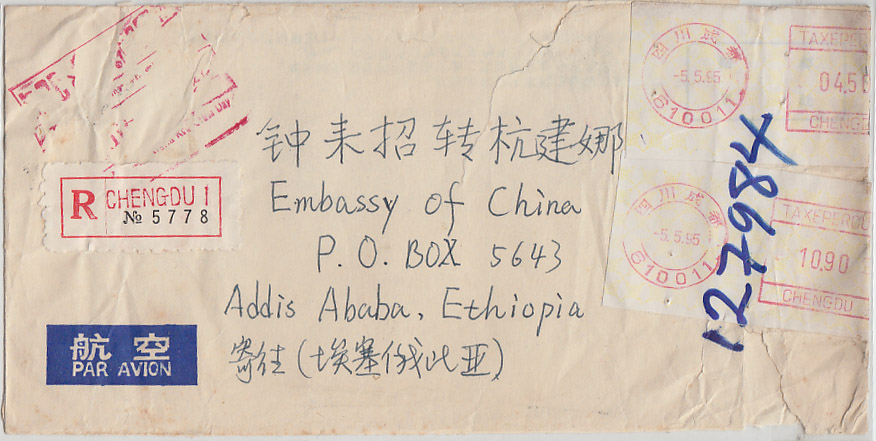 四川成都
-5.5.95
610011
CHENGDU
钟来招转杭建娜
Embassy of China
P.O. BOX 5643
Addis Ababa, Ethiopia
寄往(埃塞俄比亚)
R CHENGDU 1
№ 5778
航空
PAR AVION
四川成都
-5.5.95
610011
10.90
CHENGDU
127984